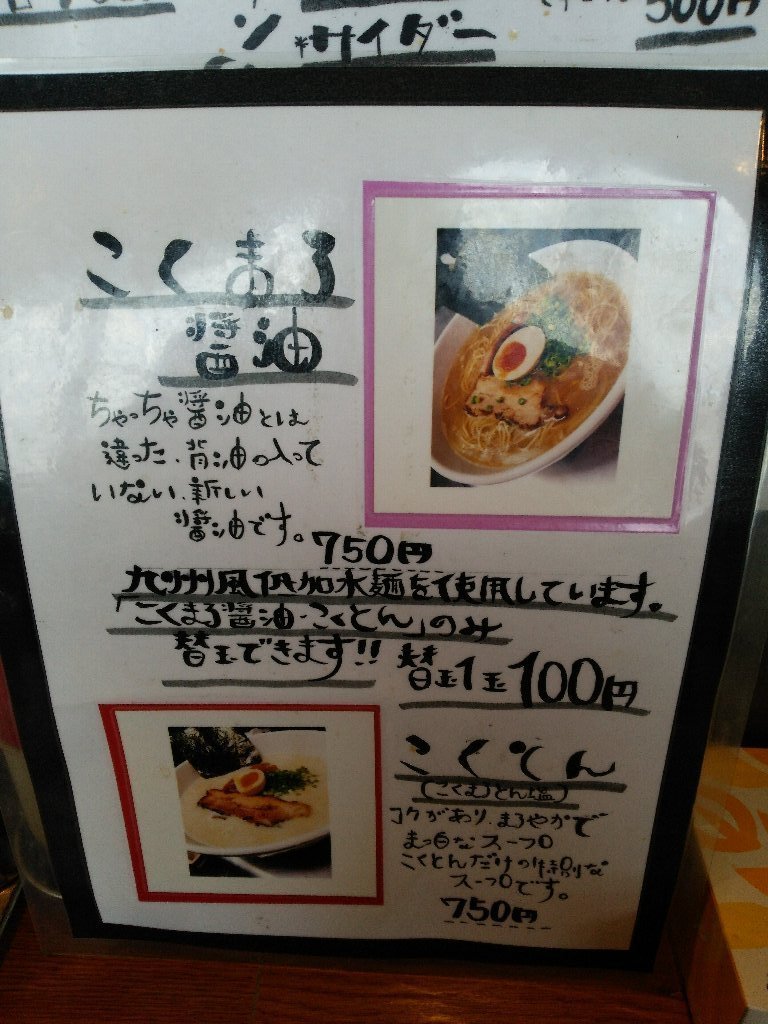 500円
サイダー
こくまろ
醤油
ちゃっちゃ醤油とは
違った、背油の入って
いない、新しい
醤油です。
750円
九州風低加水麺を使用しています。
「こくまろ醤油・こくとん」のみ
替玉できます!! 替玉1玉100円
こくとん
(こくむとん塩)
コクがあり、まろやかで
まっ白なスープ
こくとんだけの特別な
スープです。
750円